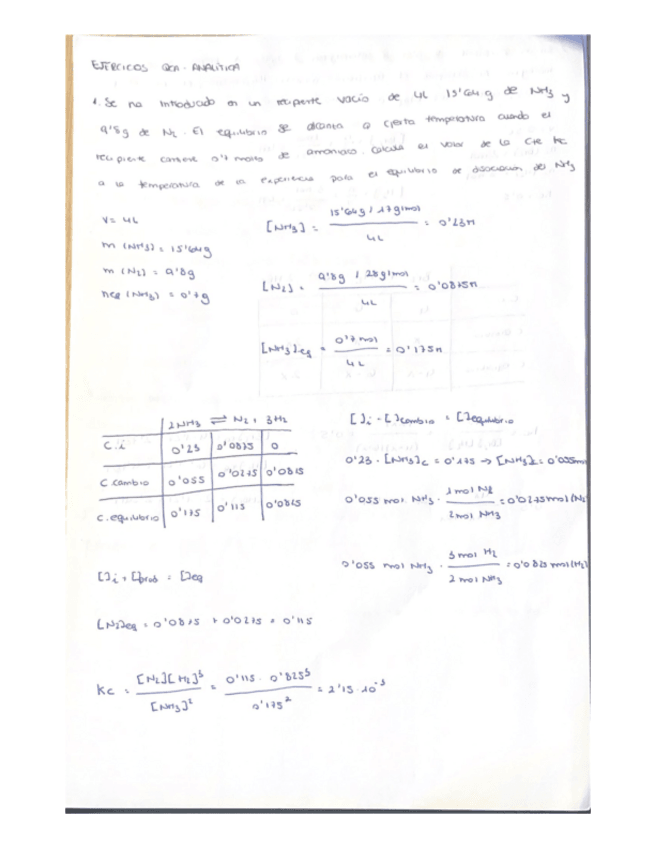 EJERCICIOS QCA. ANALÍTICA
1. Se ha introducido en un recipiente vacío de 4L 15'64g de NH3 y
9'8g de N2. El equilibrio se alcanza a cierta temperatura cuando el
recipiente contiene 0'7 moles de amoniaco. Calcula el valor de la Cte Kc
a la temperatura de la experiencia para el equilibrio de disociación del NH3
V = 4L
m (NH3) = 15'64g
m (N2) = 9'8g
neq (NH3) = 0'7g
[NH3] = 15'64g / 17g/mol / 4L = 0'23M
[N2] = 9'8g / 28g/mol / 4L = 0'0875M
[NH3]eq = 0'7 mol / 4L = 0'175M
2NH3 ⇌ N2 + 3H2
C.i 0'23 0'0875 0
C cambio 0'055 0'0275 0'0825
C. equilibrio 0'175 0'115 0'0825
[ ]i - [ ]cambio = [ ]equilibrio
0'23 - [NH3]c = 0'175 → [NH3]c = 0'055m
0'055 mol NH3 · 1 mol N2 / 2 mol NH3 = 0'0275 mol (N2
0'055 mol NH3 · 3 mol H2 / 2 mol NH3 = 0'0825 mol (H2)
[ ]i + [ ]prod = [ ]eq
[N2]eq = 0'0875 + 0'0275 = 0'115
Kc = [N2][H2]³ / [NH3]² = 0'115 · 0'825³ / 0'175² = 2'15 · 10⁻³